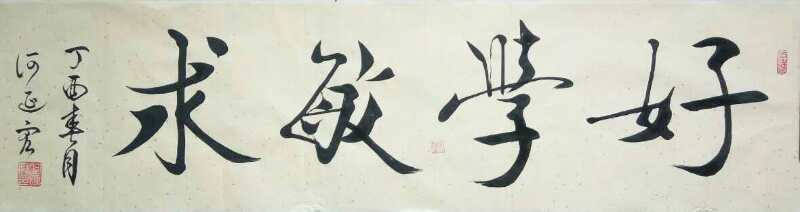 好學敏求
丁酉春月
河延宏